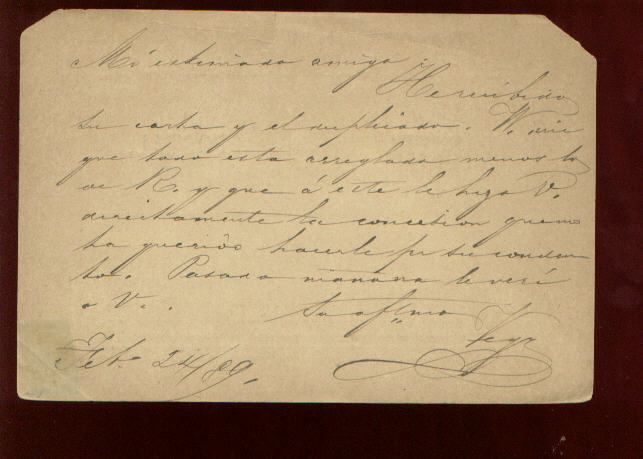 Mi estimado amigo:
He recibido
su carta y el duplicado. V. vió
que todo está arreglado menos lo
de R. y que á este le hizo V.
directamente la concesion que no
ha querido hacerle pr su conduc
to. Pasado mañana le veré
a V.
Su aftmo
Vega
Feb. 24/89.